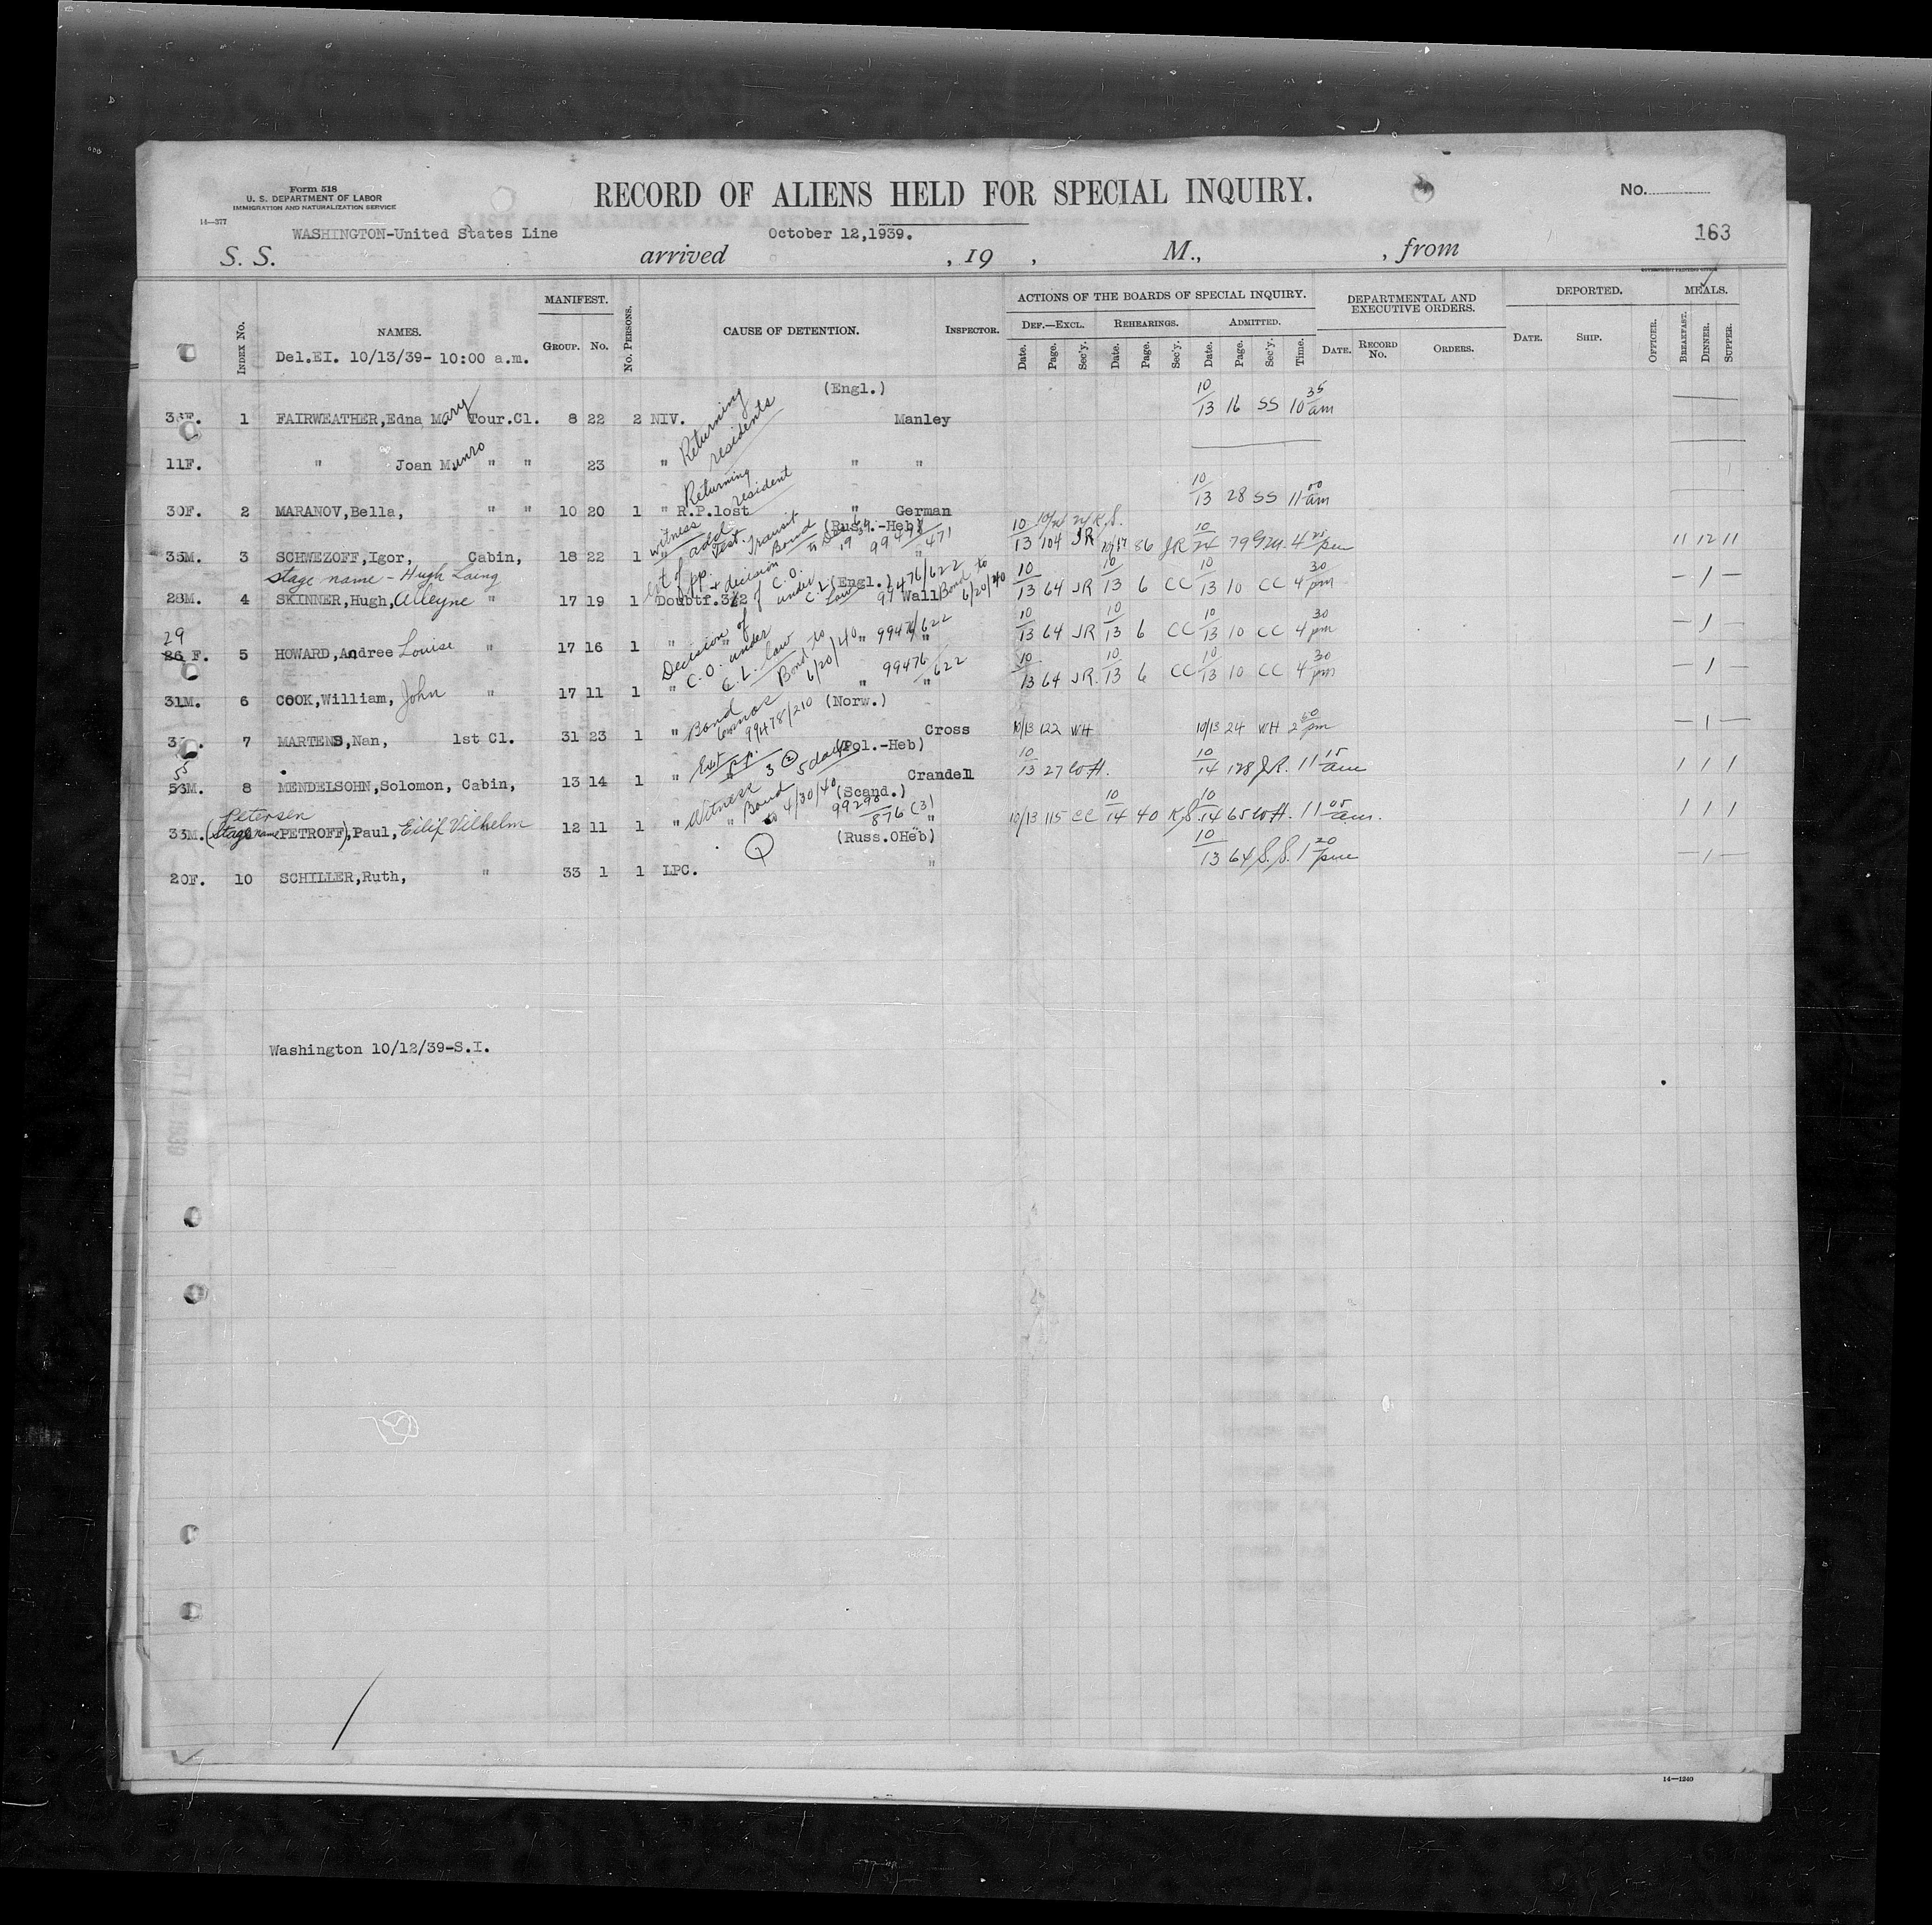 Form 518
U. S. DEPARTMENT OF LABOR
IMMIGRATION AND NATURALIZATION SERVICE
14—377
RECORD OF ALIENS HELD FOR SPECIAL INQUIRY.
No.
163
WASHINGTON-United States Line October 12,1939.
S. S. arrived , 19 , M., , from
Index No. NAMES. MANIFEST. Group. No. No. Persons. CAUSE OF DETENTION. INSPECTOR. ACTIONS OF THE BOARDS OF SPECIAL INQUIRY. DEPARTMENTAL AND EXECUTIVE ORDERS. DEPORTED. MEALS.
Def.—Excl. Rehearings. Admitted.
Date. Page. Sec'y. Date. Page. Sec'y. Date. Page. Sec'y. Time. Date. Record No. Orders. Date. Ship. Officer. Breakfast. Dinner. Supper.
Del.EI. 10/13/39- 10:00 a.m.
(Engl.)
1 FAIRWEATHER,Edna Mary Tour.Cl. 8 22 2 NIV. Returning residents Manley 10/13 16 SS 10 35 am
11F. " Joan Munro " " 23 " " "
30F. 2 MARANOV,Bella, " " 10 20 1 " R.P.lost Returning resident " German 10/13 28 SS 11 00 am
(Russ.-Heb)
35M. 3 SCHWEZOFF,Igor, Cabin, 18 22 1 " witness addl test. Transit Bond 99478/471 " 10/13 104 JR 10/17 86 JR 10/24 79 4 pm 11 12 11
stage name - Hugh Laing
(Engl.)
28M. 4 SKINNER,Hugh, Alleyne " 17 19 1 Doubtf.3x2 + decision of C.O. under C.L. Law 99476/622 Bond to 6/20/40 Wall 10/13 64 JR 10/13 6 CC 10/13 10 CC 4 30 pm — 1 —
29
26 F. 5 HOWARD,Andree Louise " 17 16 1 " " " 99476/622 " 10/13 64 JR 10/13 6 CC 10/13 10 CC 4 30 pm — 1 —
31M. 6 COOK,William, John " 17 11 1 " Decision of C.O. under C.L. law Bond to 6/20/40 " 99476/622 " 10/13 64 JR. 10/13 6 CC 10/13 10 CC 4 30 pm — 1 —
(Norw.)
7 MARTENS,Nan, 1st Cl. 31 23 1 " Bond 99478/210 Cross 10/13 122 WH 10/13 24 WH 2 pm — 1 —
(Pol.-Heb)
55
53M. 8 MENDELSOHN,Solomon, Cabin, 13 14 1 " 5 days Crandell 10/13 27 WH. 10/14 128 JR. 11 15 am 1 1 1
(Scand.)
Petersen
33M. (Stage name PETROFF),Paul, Eilif Vilhelm 12 11 1 " Witness " Bond to 4/30/40 99298/876 (3) " 10/13 115 CC 10/14 40 10/14 65 WH. 11 05 am. 1 1 1
(Russ.OHeb)
20F. 10 SCHILLER,Ruth, " 33 1 1 LPC. " 10/13 64 S.S. 1 20 pm — 1 —
Washington 10/12/39-S.I.
14—1240